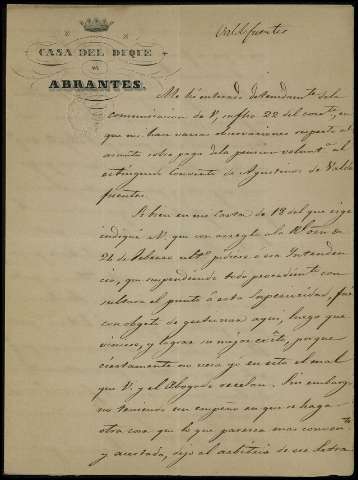 Valdefuentes
CASA DEL DUQUE
DE
ABRANTES.
Me he enterado detenidamte de la
comunicacion de V. su fha 22 del corrte, en
que me hace varias observaciones respecto al
asunto sobre pago de la pension voluntª al
extinguido Convento de Agustinos de Valde
fuentes.
Si bien en mi carta de 18 del que rige
indiqué á V. que con arreglo á la Rl orden
24 de Febrero ultº pidiese á esa Intenden
cia, que suspendiendo todo procedimiento con
sultara el punto á esta Superioridad, fué
con objeto de gestionar aquí, luego que
viniese, y lograr su mejor exito, porque
ciertamente no veia yo en esto el mal
que V. y el Abogado recelan. Sin embargo
no tenemos un empeño en que se haga
otra cosa que lo que parezca mas convente
y acertado, dejo al arbitrio de ese Letra